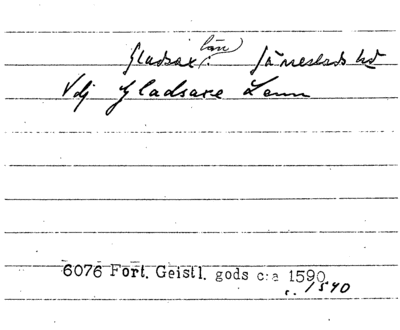 Gladsax län Järrestads hd
Vdj Gladsaxe Lenn
6076 Fort. Geistl. gods c:a 1590
c. 1540